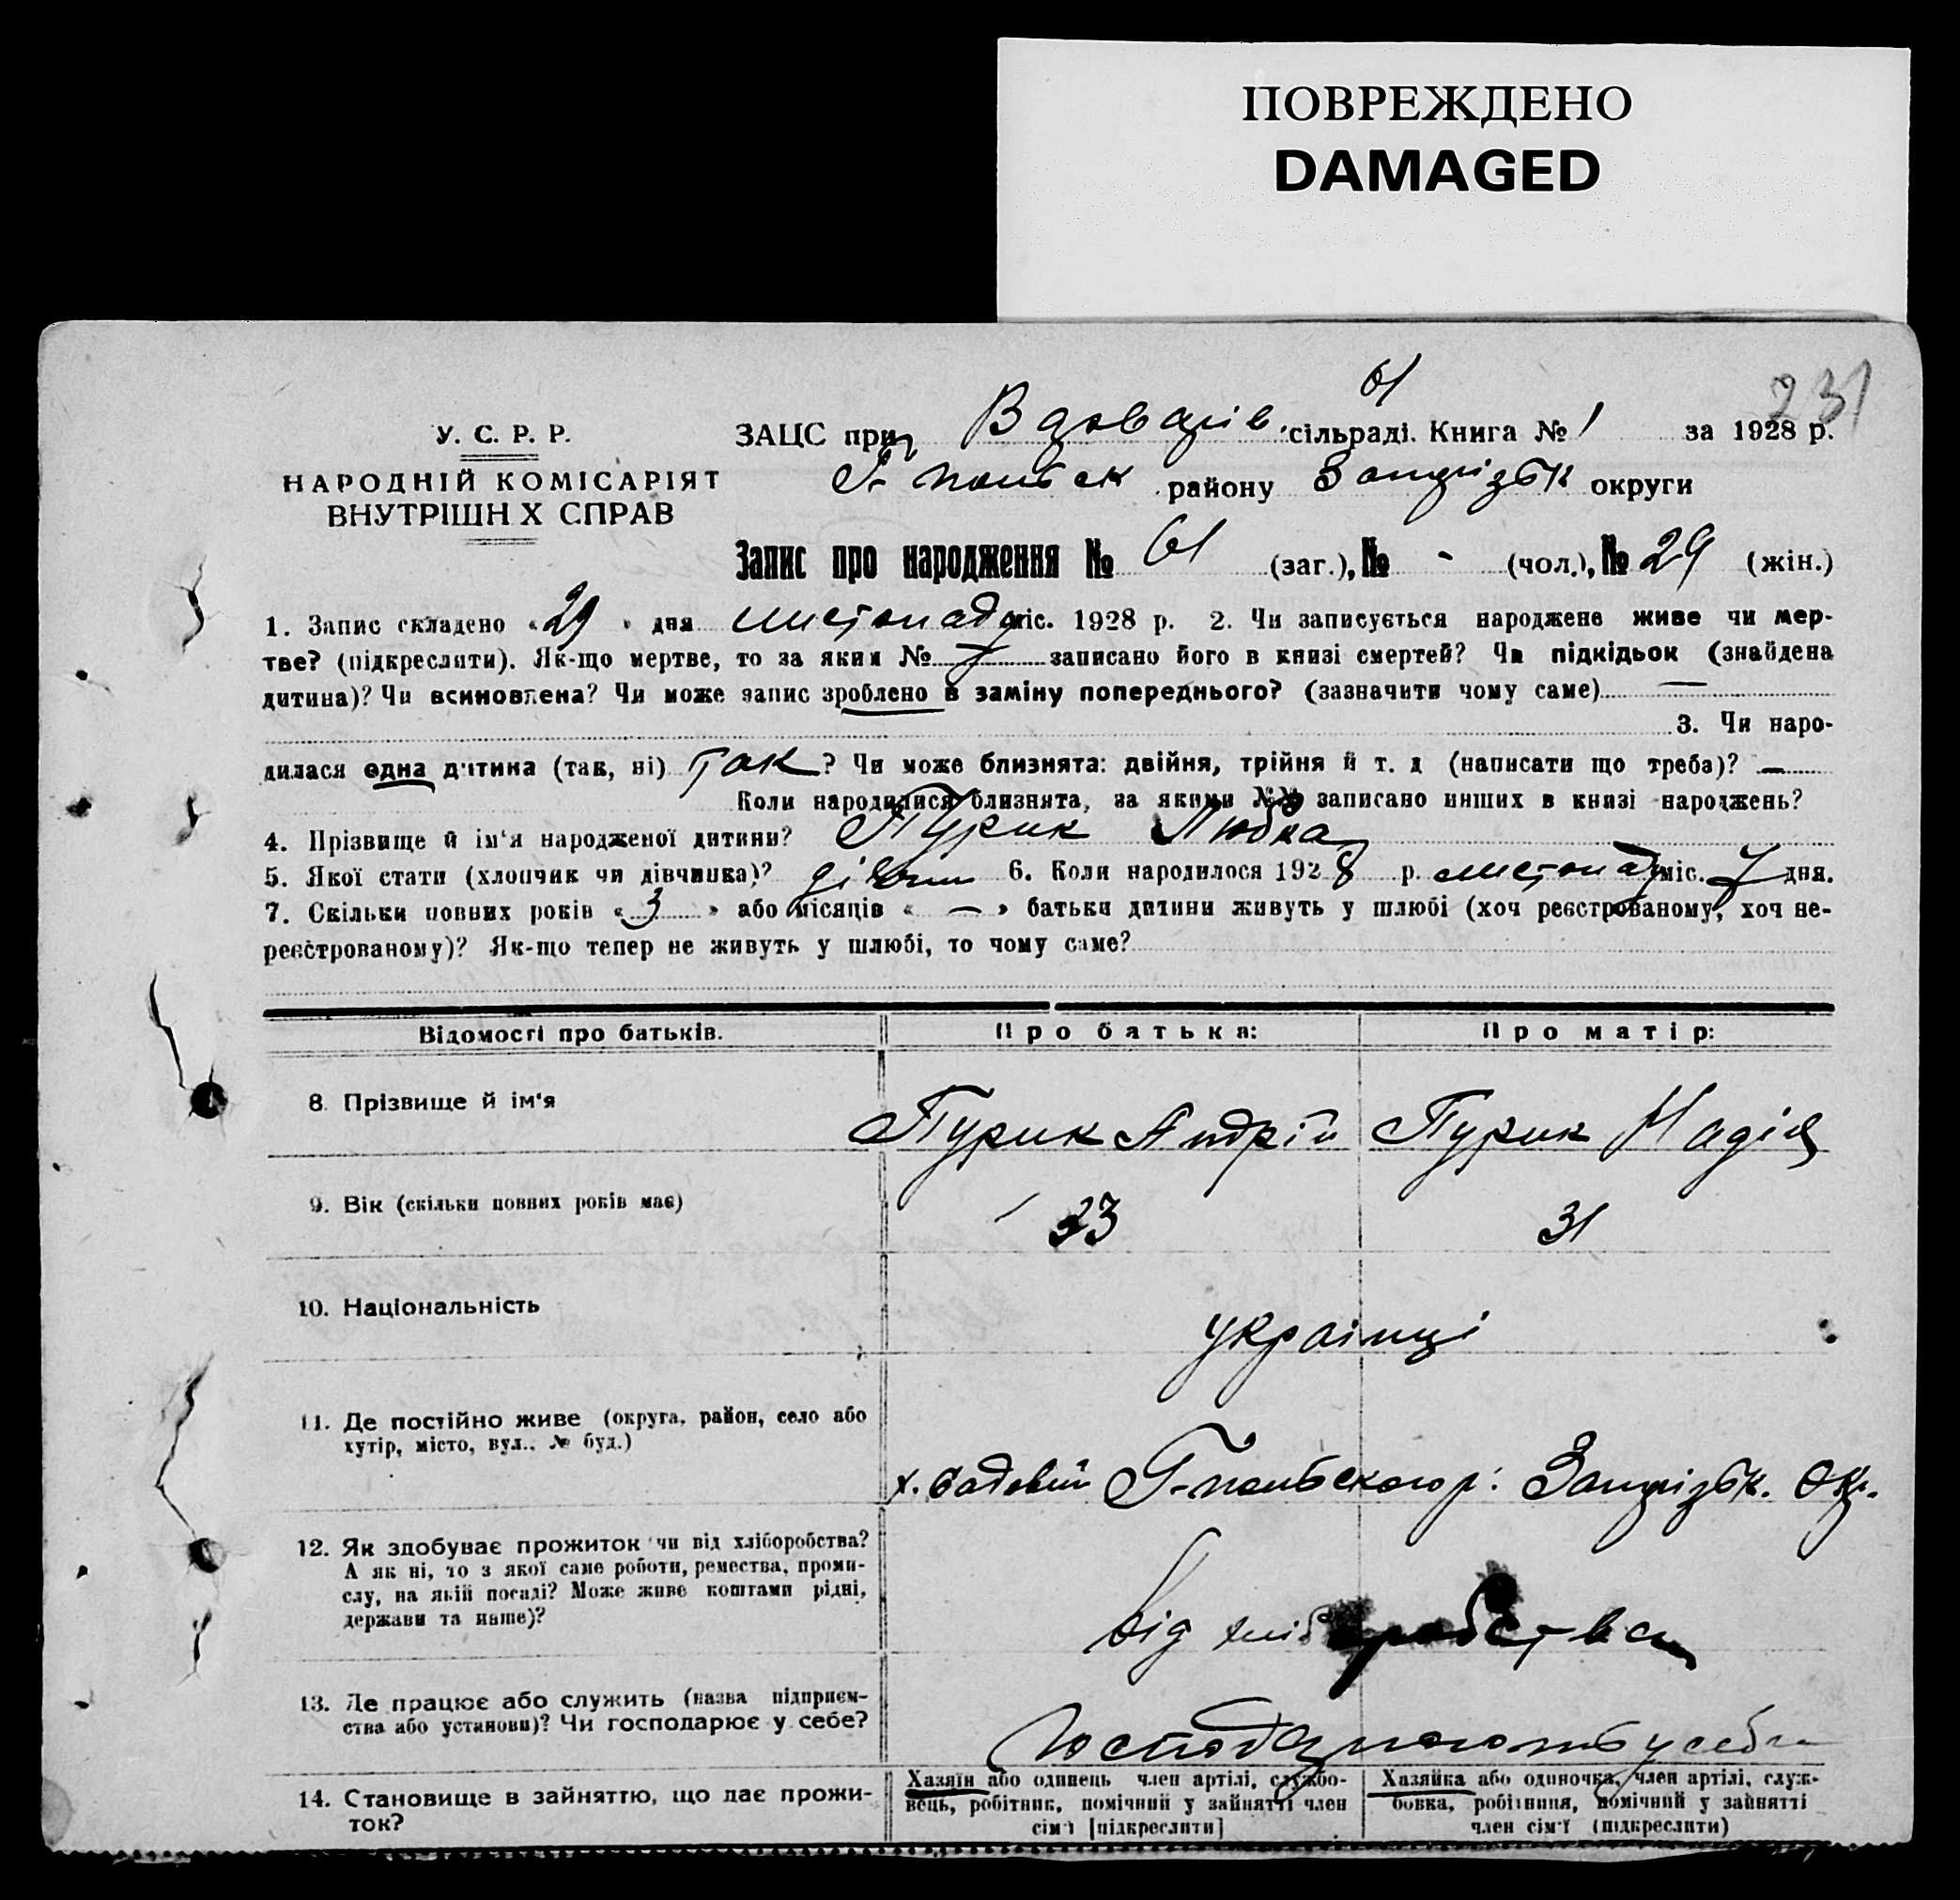 ПОВРЕЖДЕНО
DAMAGED
61
231
У. С. Р. Р.
НАРОДНІЙ КОМІСАРІЯТ
ВНУТРІШН Х СПРАВ
ЗАЦС при сільраді. Книга № 1 за 1928 р.
району Запорізьк округи
Запис про народження № 61 (заг.), № - (чол.), № 29 (жін.)
1. Запис складено «29» дня листопад міс. 1928 р. 2. Чи записується народжене живе чи мер-
тве? (підкреслити). Як-що мертве, то за яким № записано його в книзі смертей? Чи підкідьок (знайдена
дитина)? Чи всиновлена? Чи може запис зроблено в заміну попереднього? (зазначити чому саме) —
3. Чи наро-
дилася одна дитина (так, ні) так? Чи може близнята: двійня, трійня й т. д (написати що треба)? —
Коли народилися близнята, за якими №№ записано инших в книзі народжень?
4. Прізвище й ім'я народженої дитини? Пурик Любка
5. Якої стати (хлопчик чи дівчинка)? дівчин 6. Коли народилося 1928 р. листопад міс. 7 дня.
7. Скільки повних років «3» або місяців «—» батьки дитини живуть у шлюбі (хоч реєстрованому, хоч не-
реєстрованому)? Як-що тепер не живуть у шлюбі, то чому саме?
Відомості про батьків. Про батька: Про матір:
8. Прізвище й ім'я Пурик Андрій Пурик Надія
9. Вік (скільки повних років має) 33 31
10. Національність українці
11. Де постійно живе (округа, район, село або
хутір, місто, вул., № буд.)
х. Садовий Г-польского р. Запорізьк. Окр.
12. Як здобуває прожиток чи від хліборобства?
А як ні, то з якої саме роботи, ремества, проми-
слу, на якій посаді? Може живе коштами рідні,
держави та инше)?
від хліборобства
13. Де працює або служить (назва підприєм-
ства або установи)? Чи господарює у себе?
Господарюють у себе
14. Становище в зайняттю, що дає прожи-
ток?
Хазяїн або одинець член артілі, службо-
вець, робітник, помічний у зайнятті член
сім'ї [підкреслити]
Хазяйка або одиночка, член артілі, служ-
бовка, робітниця, помічний у зайнятті
член сім'ї (підкреслити)